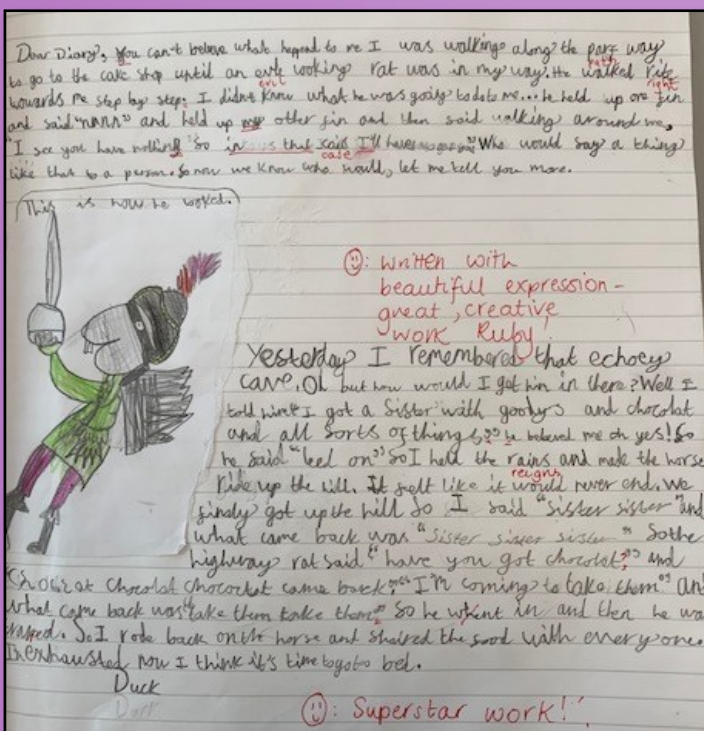 Dear Diary, you can't beleve what happend to me I was walking along the parf way
path
to go to the cake shop until an evle looking rat was in my way. He walked rite
evil
right
towards me step by step. I didn't know what he was going to do to me... he held up one fin
and said "nnnn" and held up my other fin and then said walking around me,
"I see you have nothing so in that case I'll have Who would say a thing
case
like that to a person. So now we know who would, let me tell you more.
This is how he looked.
☺: written with
beautiful expression -
great, creative
work Ruby!
Yesterday I remembered that echoey
cave. Oh but how would I get him in there? Well I
told him "I got a Sister with goodys and chocolat
and all sorts of things" he beleved me oh yes! So
he said "leed on" So I held the rains and make the horse
reigns
ride up the hill. It felt like it would never end. We
finaly got up the hill So I said "sister sister" and
what came back was "Sister sister sister" So the
highway rat said "have you got chocolat?" and
Chocolat chocolat chocolat came back. "I'm coming to take them" and
what came back was "take them take them" So he went in and then he was
traped. So I rode back on the horse and shaired the food with everyone.
I'm exhausted now I think it's time to go to bed.
Duck
☺: Superstar work!